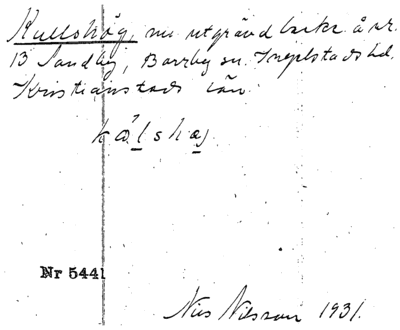 Kullshög, nu utgrävd backe å nr.
13 Sandby, Borrby sn. Ingelstads hd.
Kristianstads län.
kål̥shæ̥j
Nr 5441
Nils Nilsson 1931.